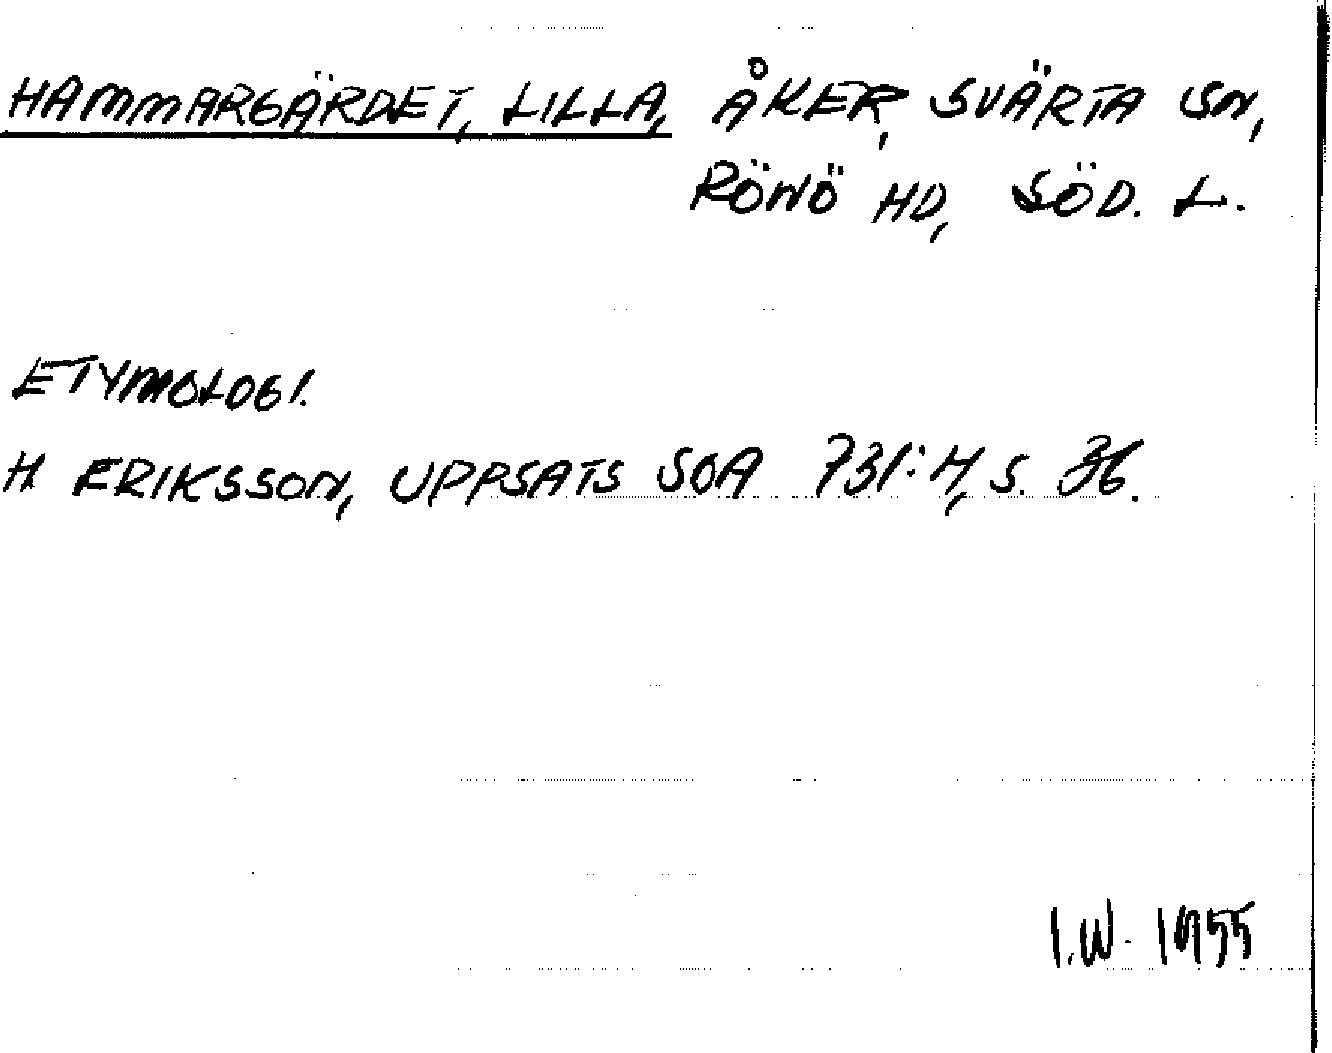 HAMMARGÄRDET, LILLA, ÅKER, SVÄRTA SN,
RÖNÖ HD, SÖD. L.
ETYMOLOGI.
H ERIKSSON, UPPSATS SOA 731:H, S. 36.
I.W. 1955